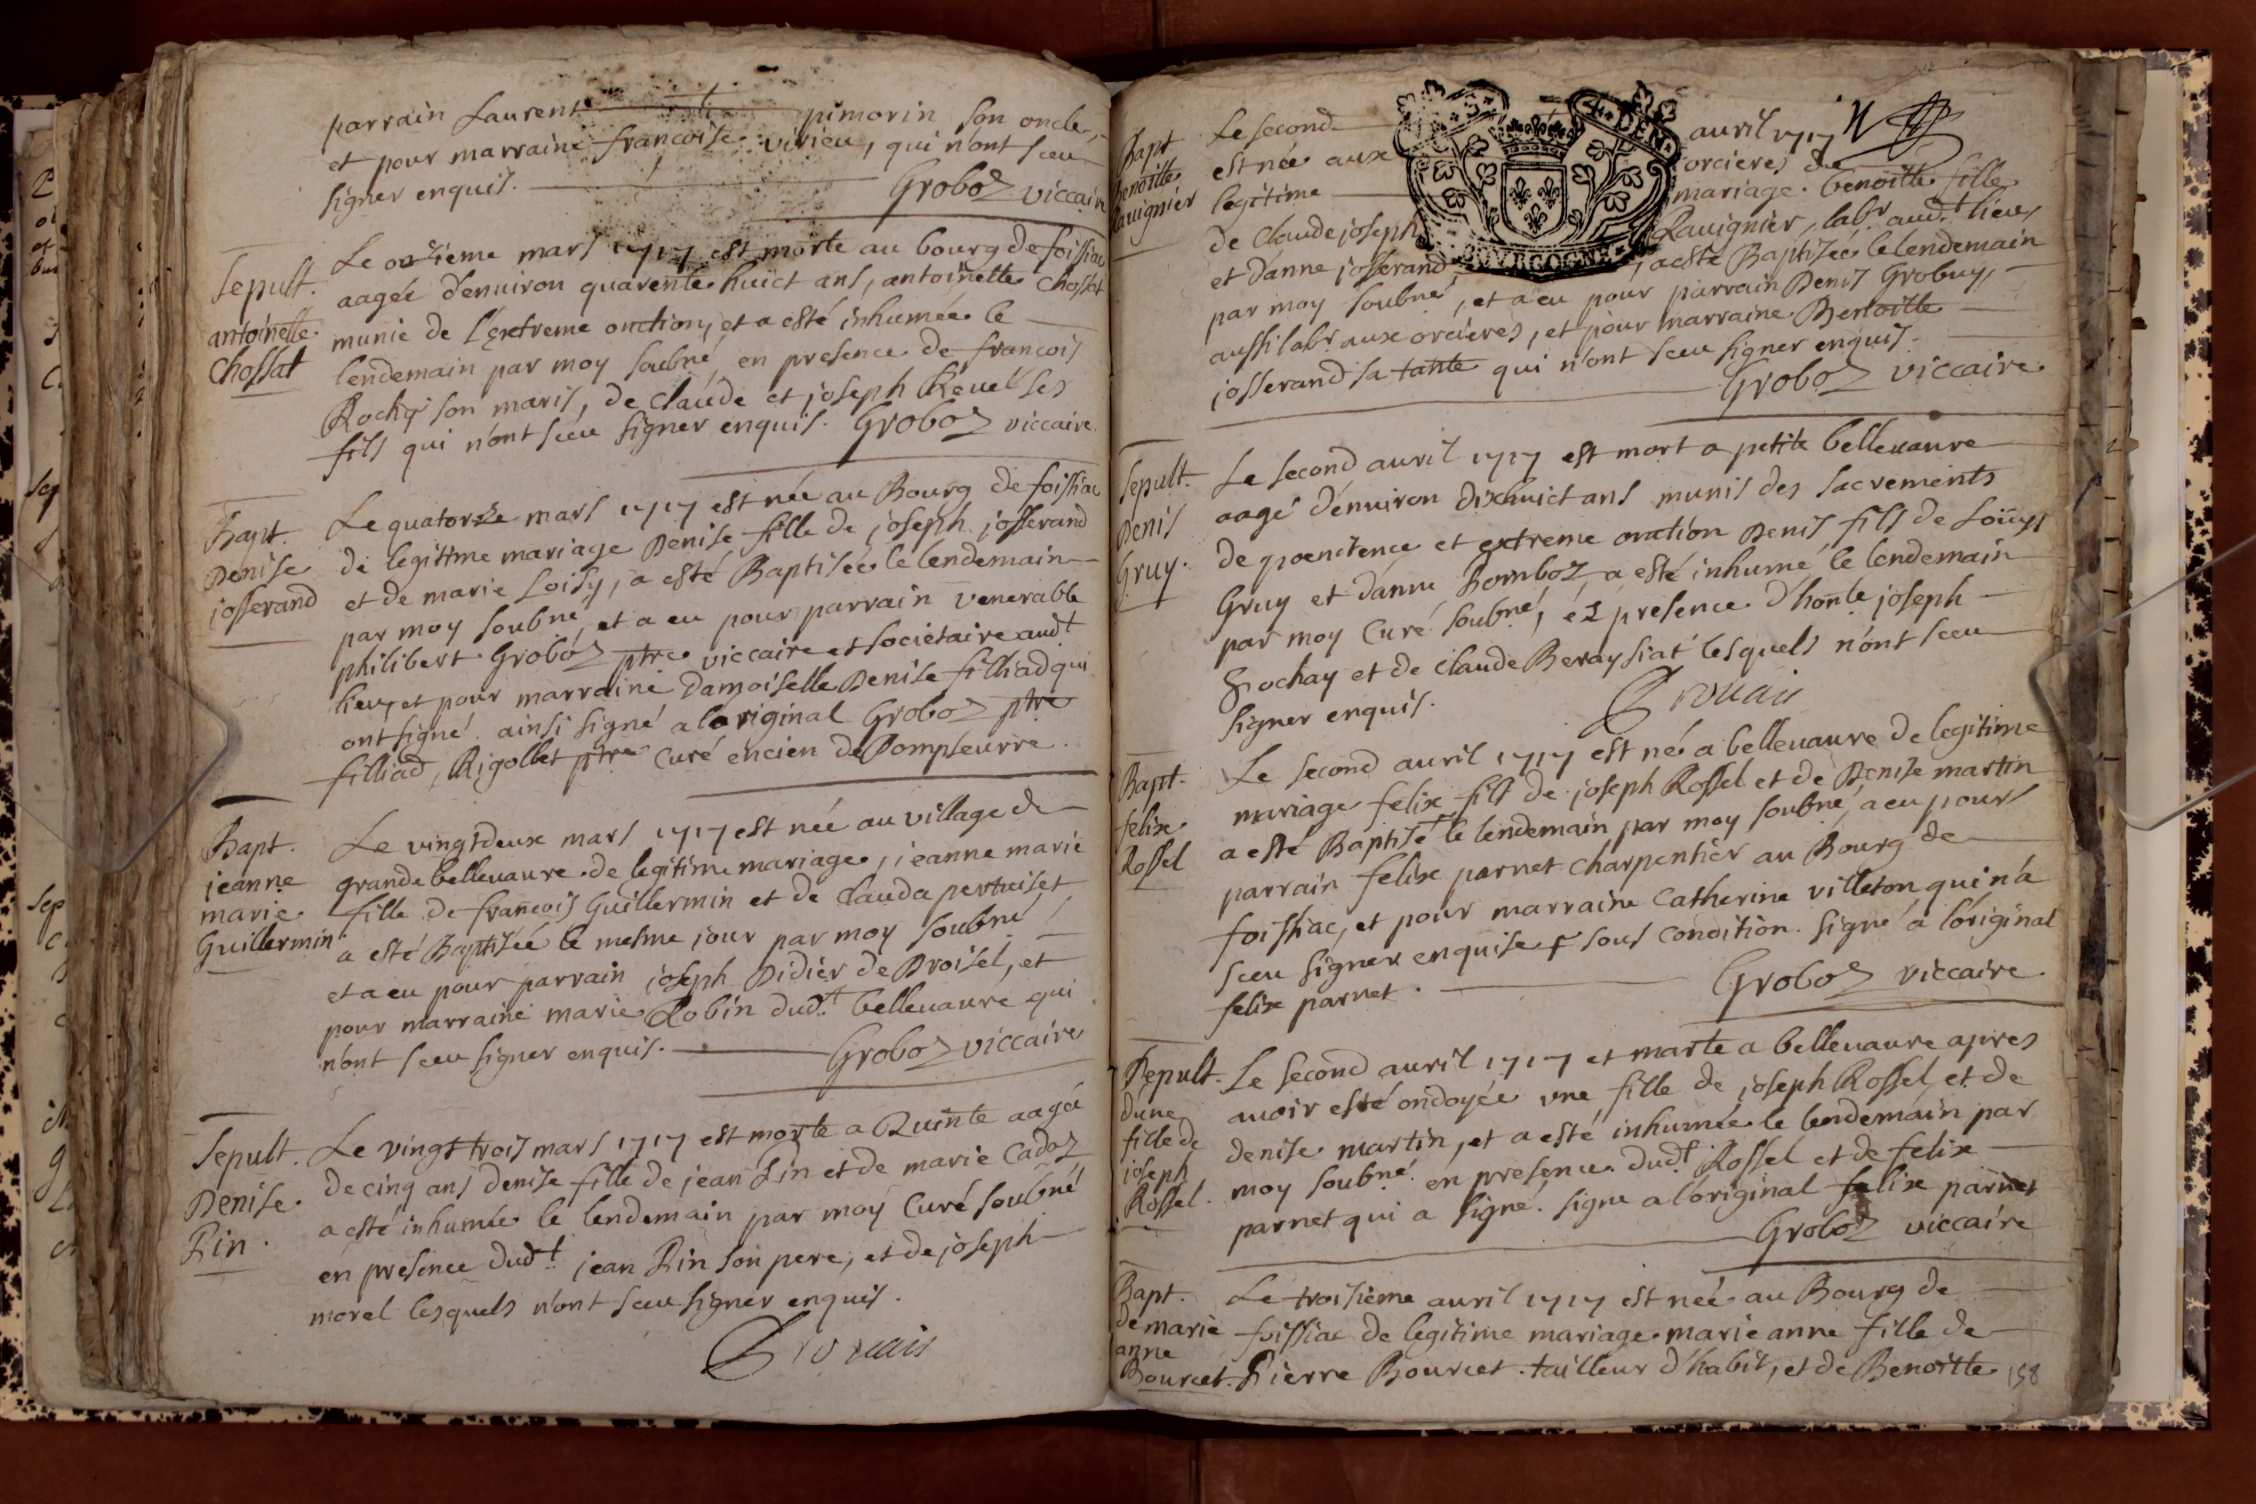 parrain Laurent pimorin son oncle,
et pour marraine francoise virieu, qui n'ont sceu
signer enquis. Groboz viccaire
Sepult.
antoinette
Chossat
Le onzieme mars 1717 est morte au bourg de foissiac
aagée d'enuiron quarente huict ans, antoinette Chossat
munie de l'extreme onction, et a esté inhumée le
lendemain par moy soubné, en presence de francois
son maris, de claude et joseph Reuel ses
fils qui n'ont sceu signer enquis. Groboz viccaire.
Bapt.
Denise
josserand
Le quatorze mars 1717 est née au Bourg de foissiac
de legitime mariage Denise fille de joseph josserand
et de marie Loisy, a esté Baptisée le lendemain
par moy soubné, et a eu pour parrain venerable
philibert Groboz ptre viccaire et societaire audt
lieu, et pour marraine Damoiselle Denise filliad qui
ont signé. ainsi signé a l'original Groboz ptre
filliad, Rigollet ptre curé encien de Dompseurre.
Bapt.
jeanne
marie
Guillermin
Le vingtdeux mars 1717 est née au village de
grande belleuaure de legitime mariage, jeanne marie
fille de francois Guillermin et de Clauda pertuiset
a esté Baptisée le mesme jour par moy soubné,
et a eu pour parrain joseph Didier de Droisel, et
pour marraine marie Robin dudt. belleuaure qui
n'ont sceu signer enquis. Groboz viccaire
Sepult.
Denise
Pin.
Le vingt trois mars 1717 est morte a Quinte aagée
de cinq ans denise fille de jean Pin et de marie Cadoz
a esté inhumée le lendemain par moy Curé soubné
en presence dudt. jean Pin son pere, et de joseph
morel lesquels n'ont sceu signer enquis.
Bapt
Benoitte
Rauignier
Le second auril 1717
est née aux orcieres de
legitime mariage. benoitte fille
de Claude joseph Rauignier, labr audt. lieu
et d'anne josserand, a esté Baptisée le lendemain
par moy soubné, et a eu pour parrain Denis Grobuy,
aussi labr aux orcieres, et pour marraine Benoitte
josserand sa tante qui n'ont sceu signer enquis.
Groboz viccaire
BOURGOGNE
Sepult.
Denis
Gruy.
Le second auril 1717 est mort a petite belleuaure
aagé d'enuiron dixhuict ans munis des sacrements
de poenitence et extreme onction Denis, fils de Loüys
Gruy et d'anne Bomboz, a esté inhumé le lendemain
par moy Curé soubné, en presence d'honte joseph
et de claude Beraysiat lesquels n'ont sceu
signer enquis.
Bapt.
felix
Rossel
Le second auril 1717 est né a belleuaure de legitime
mariage felix fils de joseph Rossel et de Denise martin
a esté Baptisé le lendemain par moy soubné, a eu pour
parrain felix parnet charpentier au Bourg de
foissiac, et pour marraine Catherine villeton qui n'a
sceu signer enquise sous condition. signé a l'original
felix parnet. Groboz viccaire
Sepult.
d'une
fille de
joseph
Rossel.
Le second auril 1717 et morte a belleuaure apres
auoir esté ondoyée une fille de joseph Rossel, et de
denise martin, et a esté inhumée le lendemain par
moy soubné en presence dudt. Rossel et de felix
parnet qui a signé. signe a l'original felix parnet
Groboz viccaire
Bapt.
de marie
anne
Bourcet.
Le troisième auril 1717 est née au Bourg de
foissiac de legitime mariage marie anne fille de
Pierre Bourcet. tailleur d'habit, et de Benoitte
158